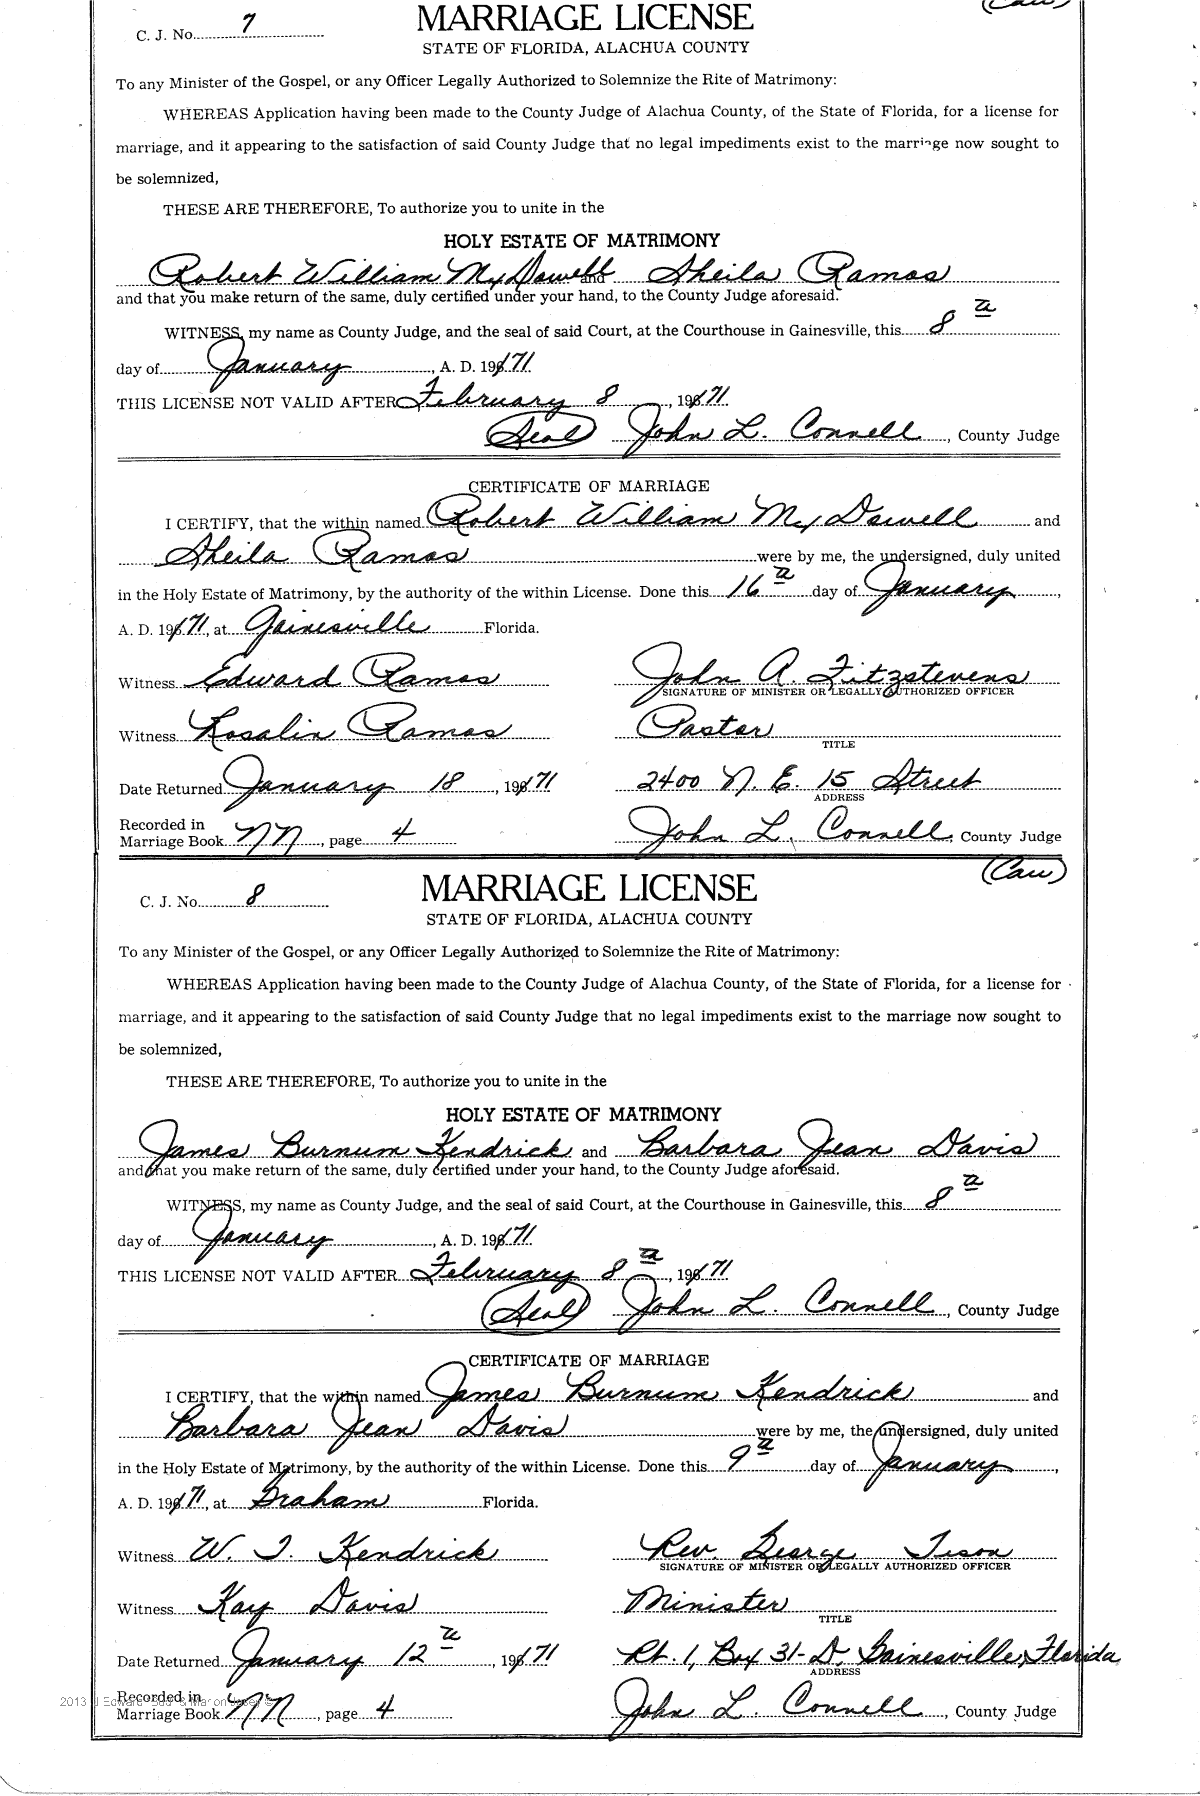 (Caw)
C. J. No. 7
MARRIAGE LICENSE
STATE OF FLORIDA, ALACHUA COUNTY
To any Minister of the Gospel, or any Officer Legally Authorized to Solemnize the Rite of Matrimony:
WHEREAS Application having been made to the County Judge of Alachua County, of the State of Florida, for a license for
marriage, and it appearing to the satisfaction of said County Judge that no legal impediments exist to the marriage now sought to
be solemnized,
THESE ARE THEREFORE, To authorize you to unite in the
HOLY ESTATE OF MATRIMONY
Robert William McDowell and Sheila Ramos
and that you make return of the same, duly certified under your hand, to the County Judge aforesaid.
WITNESS, my name as County Judge, and the seal of said Court, at the Courthouse in Gainesville, this 8th
day of January, A. D. 1971
THIS LICENSE NOT VALID AFTER February 8, 1971
(Seal) John L. Connell, County Judge
CERTIFICATE OF MARRIAGE
I CERTIFY, that the within named Robert William McDowell and
Sheila Ramos were by me, the undersigned, duly united
in the Holy Estate of Matrimony, by the authority of the within License. Done this 16th day of January,
A. D. 1971, at Gainesville Florida.
Witness Edward Ramos John A. Fitzstevens
SIGNATURE OF MINISTER OR LEGALLY AUTHORIZED OFFICER
Witness Rosalin Ramos Pastor
TITLE
Date Returned January 18, 1971 2400 N. E. 15 Street
ADDRESS
Recorded in
Marriage Book NN, page 4 John L. Connell, County Judge
(Caw)
C. J. No. 8
MARRIAGE LICENSE
STATE OF FLORIDA, ALACHUA COUNTY
To any Minister of the Gospel, or any Officer Legally Authorized to Solemnize the Rite of Matrimony:
WHEREAS Application having been made to the County Judge of Alachua County, of the State of Florida, for a license for
marriage, and it appearing to the satisfaction of said County Judge that no legal impediments exist to the marriage now sought to
be solemnized,
THESE ARE THEREFORE, To authorize you to unite in the
HOLY ESTATE OF MATRIMONY
James Burnum Kendrick and Barbara Jean Davis
and that you make return of the same, duly certified under your hand, to the County Judge aforesaid.
WITNESS, my name as County Judge, and the seal of said Court, at the Courthouse in Gainesville, this 8th
day of January, A. D. 1971
THIS LICENSE NOT VALID AFTER February 8th, 1971
(Seal) John L. Connell, County Judge
CERTIFICATE OF MARRIAGE
I CERTIFY, that the within named James Burnum Kendrick and
Barbara Jean Davis were by me, the undersigned, duly united
in the Holy Estate of Matrimony, by the authority of the within License. Done this 9th day of January,
A. D. 1971, at Graham Florida.
Witness W. T. Kendrick Rev. George Tison
SIGNATURE OF MINISTER OR LEGALLY AUTHORIZED OFFICER
Witness Kay Davis Minister
TITLE
Date Returned January 12th, 1971 Rt. 1, Box 31-D, Gainesville, Florida
ADDRESS
Recorded in
Marriage Book NN, page 4 John L. Connell, County Judge
2013 J Edward